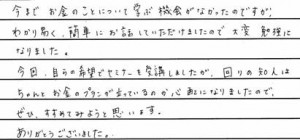 今まで お金のことについて学ぶ機会がなかったのですが、
わかり易く、簡単に お話していただけましたので 大変 勉強に
なりました。
今回、自らの希望でセミナーを受講しましたが、回りの知人は
ちゃんとお金のプランが立っているのか心配になりましたので、
ぜひ、すすめてみようと思います。
ありがとうございました。